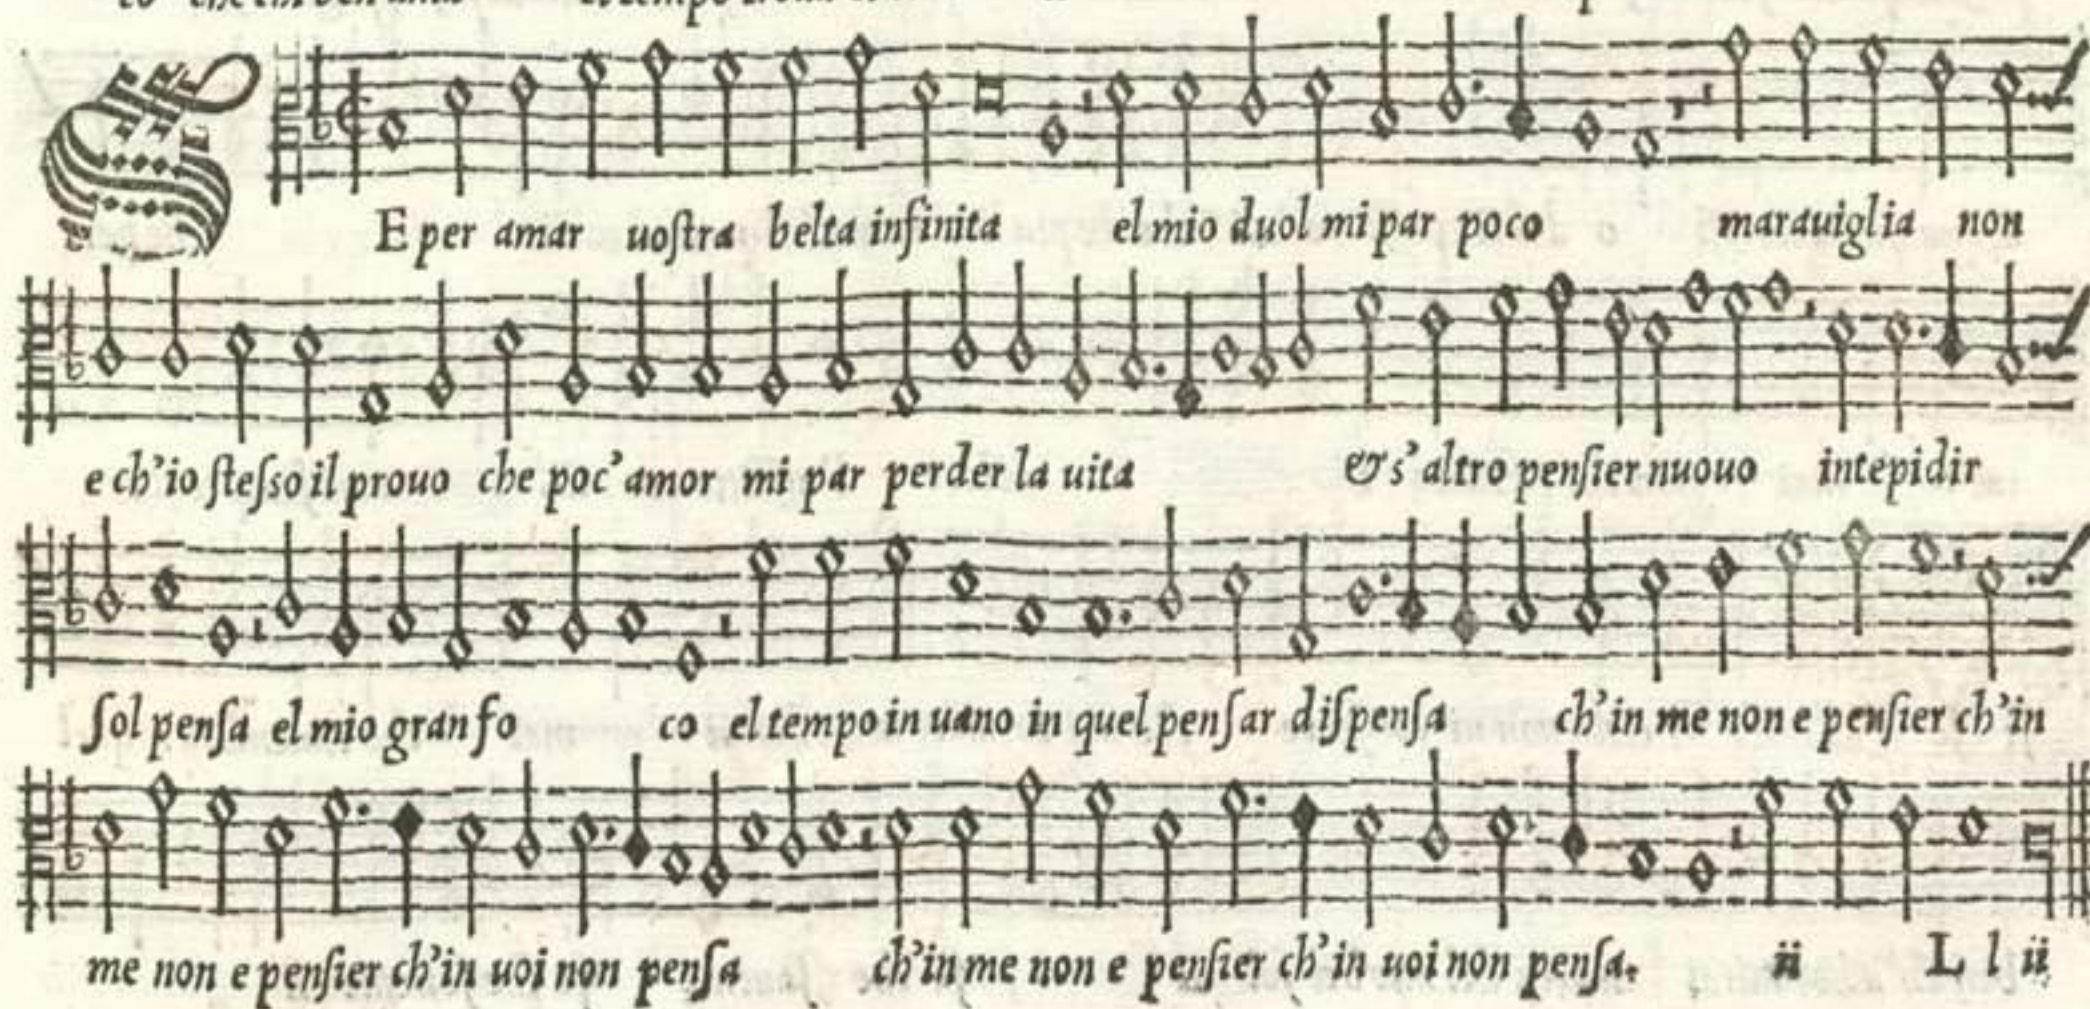 che chi ben ama
SE per amar uoſtra belta infinita el mio duol mi par poco marauiglia non
e ch'io ſteſso il prouo che poc' amor mi par perder la uita & s' altro penſier nuouo intepidir
ſol penſa el mio gran fo co el tempo in uano in quel penſar diſpenſa ch'in me non e penſier ch'in
me non e penſier ch'in uoi non penſa ch'in me non e penſier ch'in uoi non penſa. ii L l ii